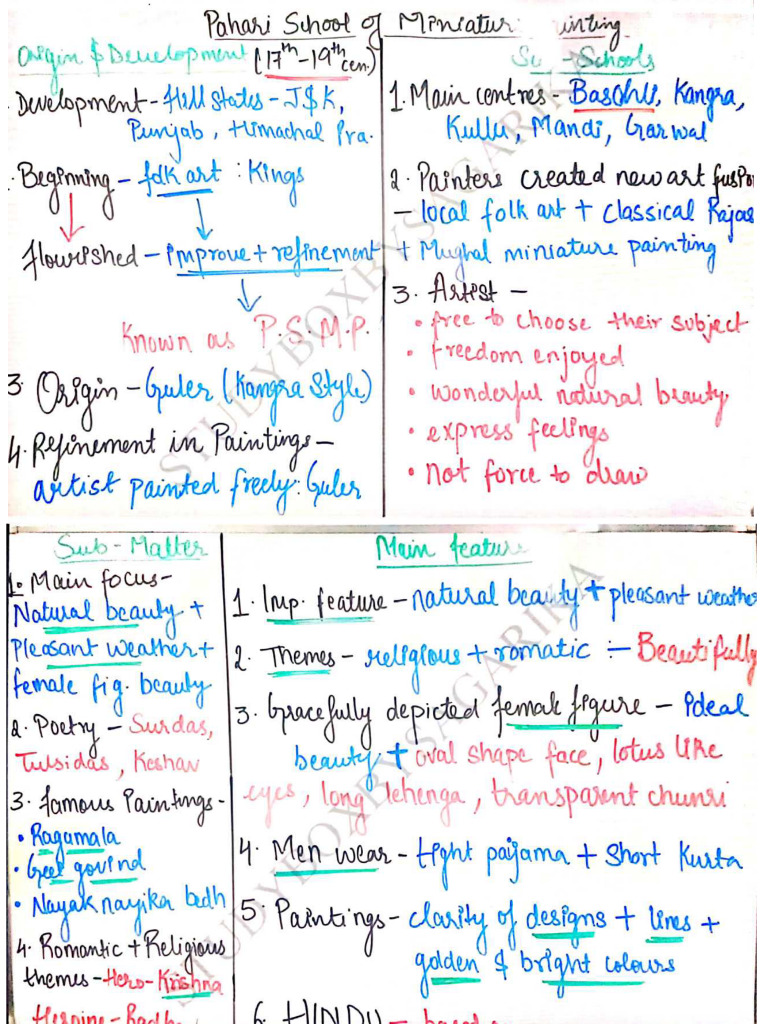 Pahari School of Miniatur inting
Origin & Development (17th-19th cen.)
Development - Hill States - J&K,
Punjab, Himachal Pra.
Beginning - folk art : Kings
flourished - improve + refinement
Known as P.S.M.P.
3. Origin - Guler (Kangra Style)
4. Refinement in Paintings -
artist painted freely: Guler
Su -Schools
1. Main centres - Basohli, Kangra,
Kullu, Mandi, Garwal
2. Painters created new art fusio
- local folk art + classical Rajas
+ Mughal miniature painting
3. Artist -
• free to choose their subject
• freedom enjoyed
• wonderful natural beauty
• express feelings
• not force to draw
Sub-Matter
1. Main focus -
Natural beauty +
Pleasant weather +
female fig. beauty
2. Poetry - Surdas,
Tulsidas, Keshav
3. famous Paintings -
• Ragamala
• Geet govind
• Nayak nayika bedh
4. Romantic + Religious
themes - Hero - Krishna
Heroine - Radh
Main feature
1. Imp. feature - natural beauty + pleasant weather
2. Themes - religious + romatic :- Beautifully
3. Gracefully depicted female figure - ideal
beauty + oval shape face, lotus like
eyes, long lehenga, transparent chunri
4. Men wear - tight paijama + short Kurta
5. Paintings - clarity of designs + lines +
golden & bright colours
6. HINDU - based
STUDYBOXBYSAGARIKA
STUDYBOXBYSAGARIKA